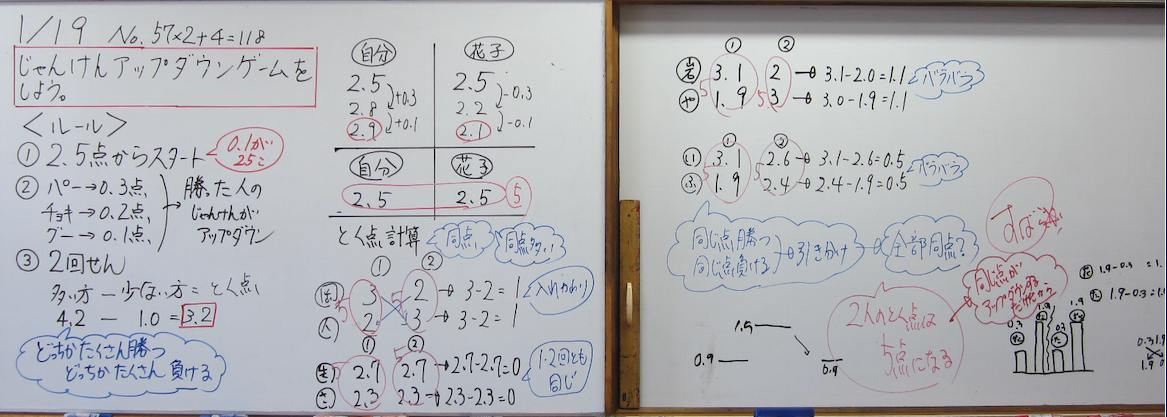 1/19 No. 57×2+4=118
じゃんけんアップダウンゲームを
しよう。
<ルール>
① 2.5点からスタート
0.1が
25こ
② パー→0.3点
チョキ→0.2点
グー→0.1点
勝った人の
じゃんけんが
アップダウン
③ 2回せん
多い方 － 少ない方 = とく点
4.2 － 1.0 = 3.2
どっちかたくさん勝つ
どっちかたくさん負ける
自分 花子
2.5 2.5
+0.3 -0.3
2.8 2.2
+0.1 -0.1
2.9 2.1
自分 花子
2.5 2.5 5
とく点計算
同点
同点多い
① ②
3 2 → 3-2=1
2 3 → 3-2=1
5 5
入れかわり
① ②
2.7 2.7 → 2.7-2.7=0
2.3 2.3 → 2.3-2.3=0
5
1.2回とも
同じ
① ②
岩 3.1 2 → 3.1-2.0=1.1
や 1.9 3 → 3.0-1.9=1.1
5 5
バラバラ
① ②
い 3.1 2.6 → 3.1-2.6=0.5
ふ 1.9 2.4 → 2.4-1.9=0.5
5 5
バラバラ
同じ点勝つ
同じ点負ける
→引き分け
全部同点?
2人のとく点は
5点になる
同じ点が
アップダウンする
だけだから
1.5
0.9
0.9
1.9-0.3=1.
1.9-0.3=1.
0.3
1.9
0.3
1.9